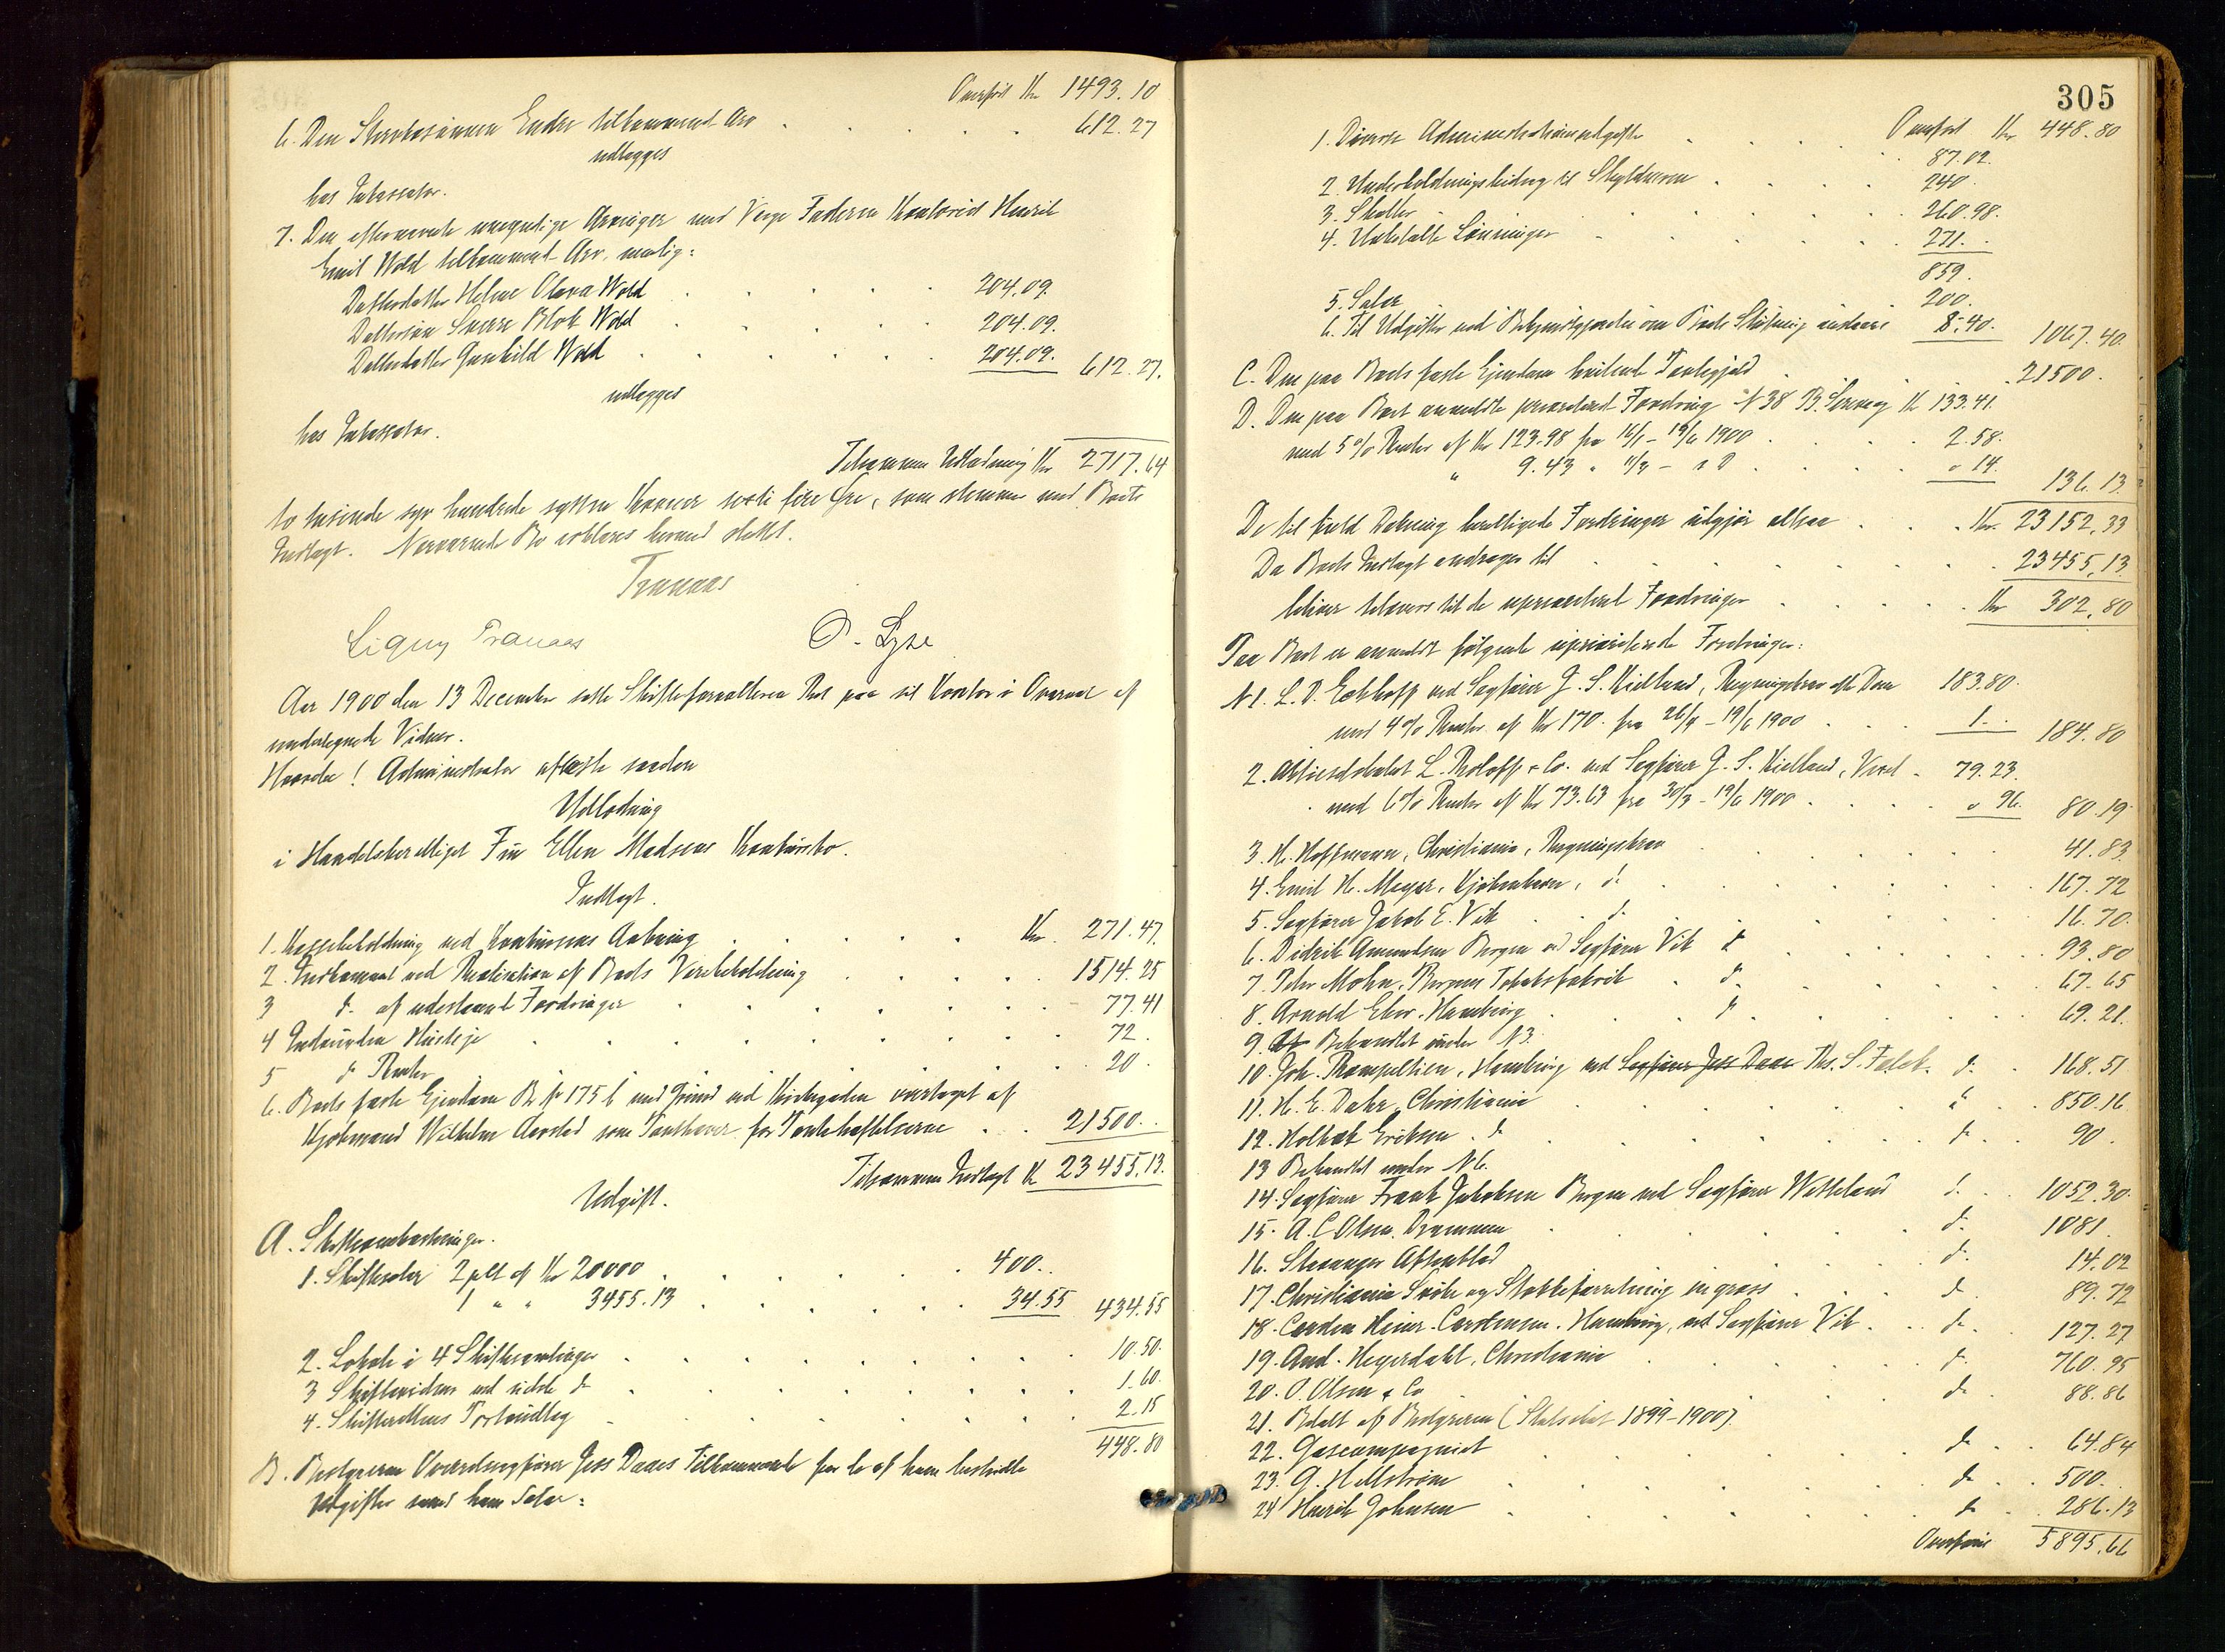 Overført Kr 1493.10
6. Den Stervbosønnen Endre tilkommende Arv 612.27
udlægges
hos Inkassator.
7. Den efternævnte umyndige Arvinger med Verge Faderen Kontorist Henrik
Emil Wold tilkommende Arv, nemlig:
Datterdatter Helene Olava Wold 204.09.
Dattersøn Sverre Blok Wold 204.09.
Datterdatter Gunhild Wold 204.09. 612.27.
udlægges
hos Inkassator.
Tilsammen Udlodning Kr 2717.64
to tusinde syv hundrede sytten Kroner sexti fire Øre, som stemmer med Boets
Indtægt. Nærværende Bo erklæres hermed sluttet.
Tranaas
Signy Tranaas O. Lyse
Aar 1900 den 13 December satte Skifteforvalteren Ret paa sit Kontor i Overvær af
undertegnede Vidner.
Hvorda! Administrator aflagte saadan
Udlodning
i Handelsberettiget Fru Ellen Madsens Konkursbo.
Indtægt.
1. Kassebeholdning ved Konkursens Aabning Kr. 271.47.
2. Indkommet ved Realisation af Boets Varebeholdning 1514.25
3 do. af udestaaende Fordringer 77.41
4 Indvunden Husleje 72.
5 do Renter 20.
6. Boets faste Ejendom B. No 175 b med Grund ved Kirkegaden overtaget af
Kjøbmand Wilhelm Aarstad som Panthaver for Pantehæftelserne 21500..
Tilsammen Indtægt Kr 23455.13.
Udgift.
A. Skifteomkostninger.
1. Skiftesalær 2 pCt af Kr 20000 400..
1 " " 3455.13 34.55 434.55
2. Lokale i 4 Skiftesamlinger 10.50.
3 Skiftevidner ved sidste do 1.60.
4. Skifterettens Portoudlæg 2.15
448.80
B. Bestyreren Overretssagfører Jess Daaes Tilkommende for de af ham bestridte
Udgifter samt hans Salær:
305
Overført Kr 448.80
1. Diverse Administrationsudgifter 87.02.
2. Underholdningsbidrag til Skyldneren 240.
3. Skatter 260.98.
4. Udbetalte Lønninger 271.
859.
5. Salær 200.
6. Til Udgifter ved Bekjendtgjørelse om Boets Slutning 8.40. 1067.40.
C. Den paa Boets faste Ejendom hvilende Pantegjæld 21500.
D. Den paa Boet anmeldte prioriterede Fordring No 38 B. Kr 133.41.
med 5% Renter af Kr 123.98 fra 16/1 - 19/6 1900 2.58.
" 9.43 " - " 0 14. 136.13.
De til fuld Dækning berettigede Fordringer udgjør altsaa Kr. 23152.33
Da Boets Indtægt andrager til 23455.13.
bliver tilovers til de uprioriterede Fordringer Kr 302.80
Paa Boet er anmeldt følgende uprioriterede Fordringer:
No 1. L. D. Eckhoff ved Sagfører J. S. Kielland, Regningskrav efter Dom 183.80.
med 4% Renter af Kr 170. fra 26/4 - 19/6 1900 1.. 184.80
2. Aktieselskabet L. Roloff & Co. ved Sagfører J. S. Kielland, Vexel 79.23.
med 6% Renter af Kr 73.63 fra 30/3 - 19/6 1900 0 96. 80.19.
3. H. Hoffmann, Christiania, Regningskrav 41.83.
4. Emil H. Meyer, Kjøbenhavn, do 167.72
5. Sagfører Jakob E. Vik do 16.70.
6. Didrik Amundsen Bergen ved Sagfører Vik do 93.80
7. Peter Mohn, Bergens Tobaksfabrik do. 67.65
8. Arnold Elver, Hamburg do 69.21.
9. Behandlet under No 3.
10. Joh. Rompeltien, Hamburg ved Sagfører Jess Daae Ths. S. Falck. do. 168.51
11. H. E. Dahr, Christiania do 850.16
12. Holbæk Eriksen. do do 90.
13 Behandlet under No 6.
14. Sagfører Frantz Jakobsen Bergen ved Sagfører Wetteland do. 1052.30.
15. A. C. Olsen, Drammen do. 1081.
16. Stavanger Aftenblad do. 14.02
17. Christiania Snøre og Stokkeforretning en gross do. 89.72
18. Carsten Heinr. Carstensen. Hamburg, ved Sagfører Vik do. 127.27
19. And. Heyerdahl, Christiania do. 760.95
20. O. Olsen & Co do. 88.86
21. Betalt af Bestyreren (Skat 1899-1900).
22. Gascompagniet do 64.84
23. G. Hellstrøm do 500.
24 Henrik Johnsen do 286.13
Overføres 5895.66